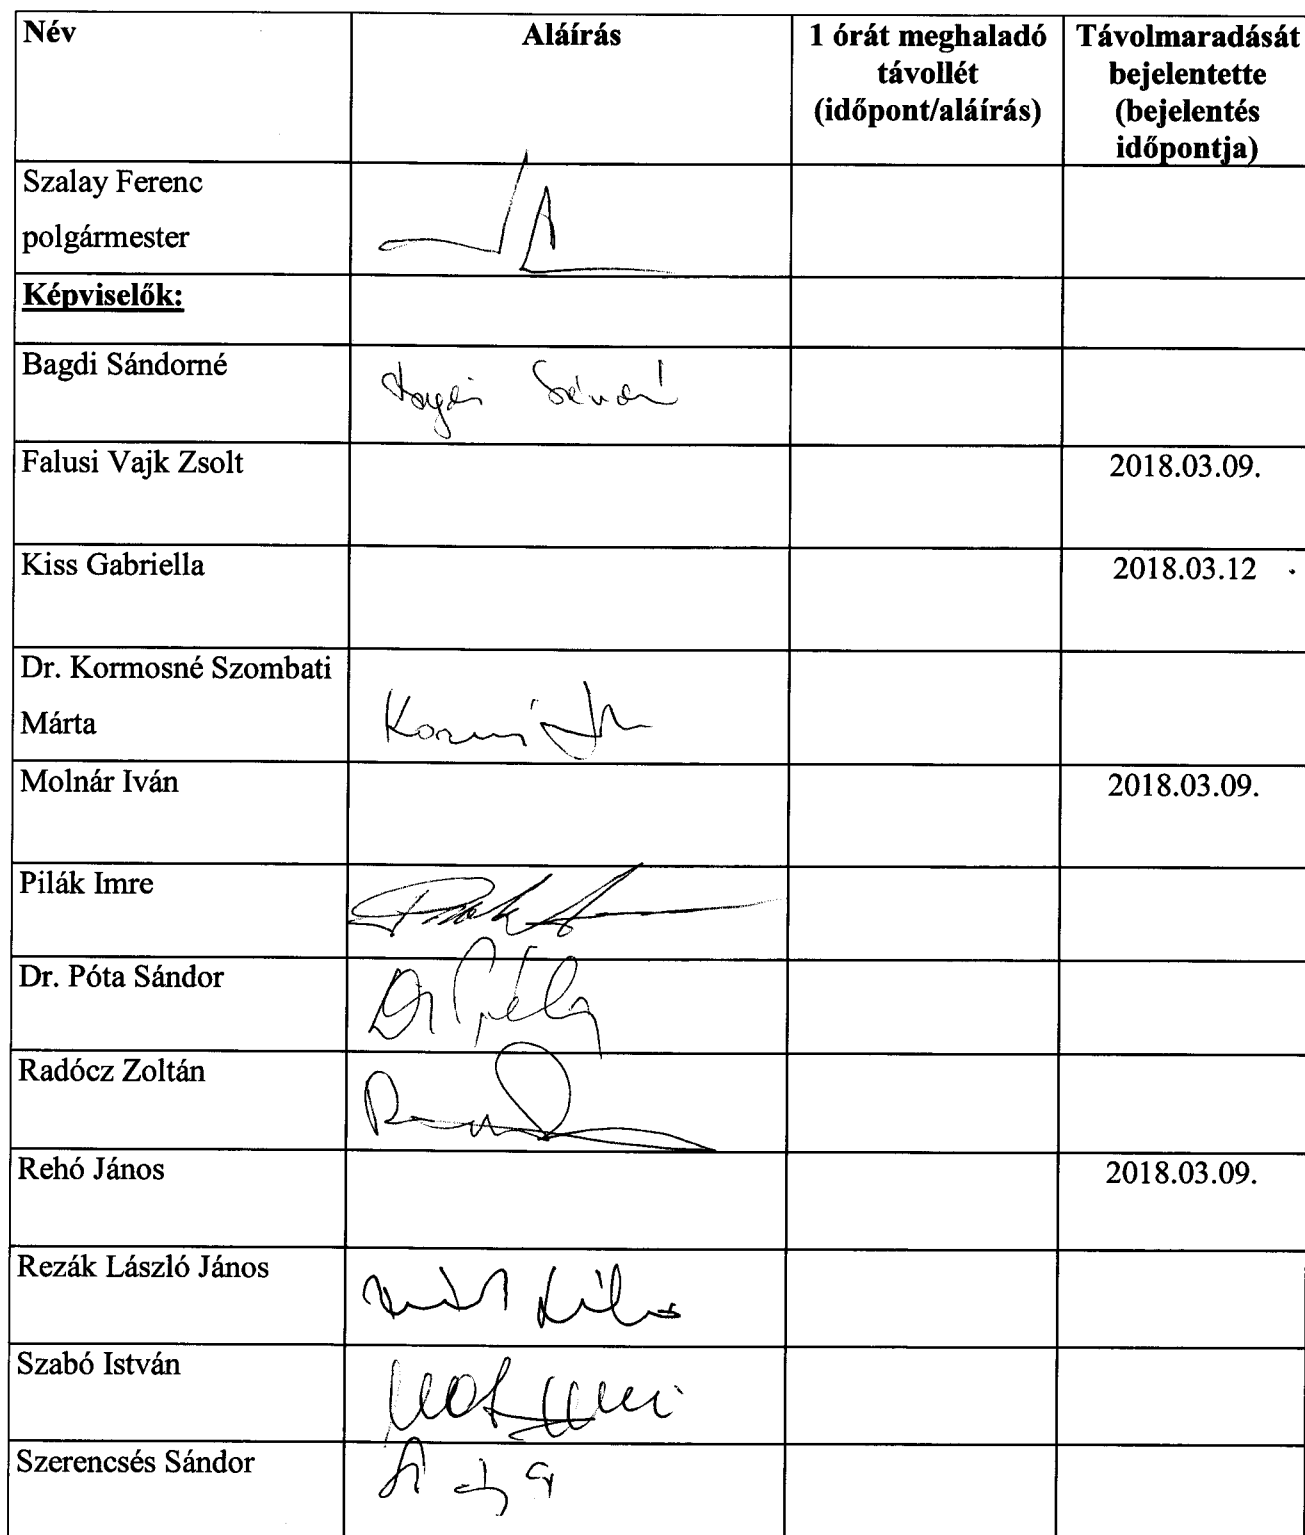 Név Aláírás 1 órát meghaladó Távolmaradását
távollét bejelentette
(időpont/aláírás) (bejelentés
időpontja)
Szalay Ferenc
polgármester
Képviselők:
Bagdi Sándorné
Falusi Vajk Zsolt 2018.03.09.
Kiss Gabriella 2018.03.12 .
Dr. Kormosné Szombati
Márta
Molnár Iván 2018.03.09.
Pilák Imre
Dr. Póta Sándor
Radócz Zoltán
Rehó János 2018.03.09.
Rezák László János
Szabó István
Szerencsés Sándor